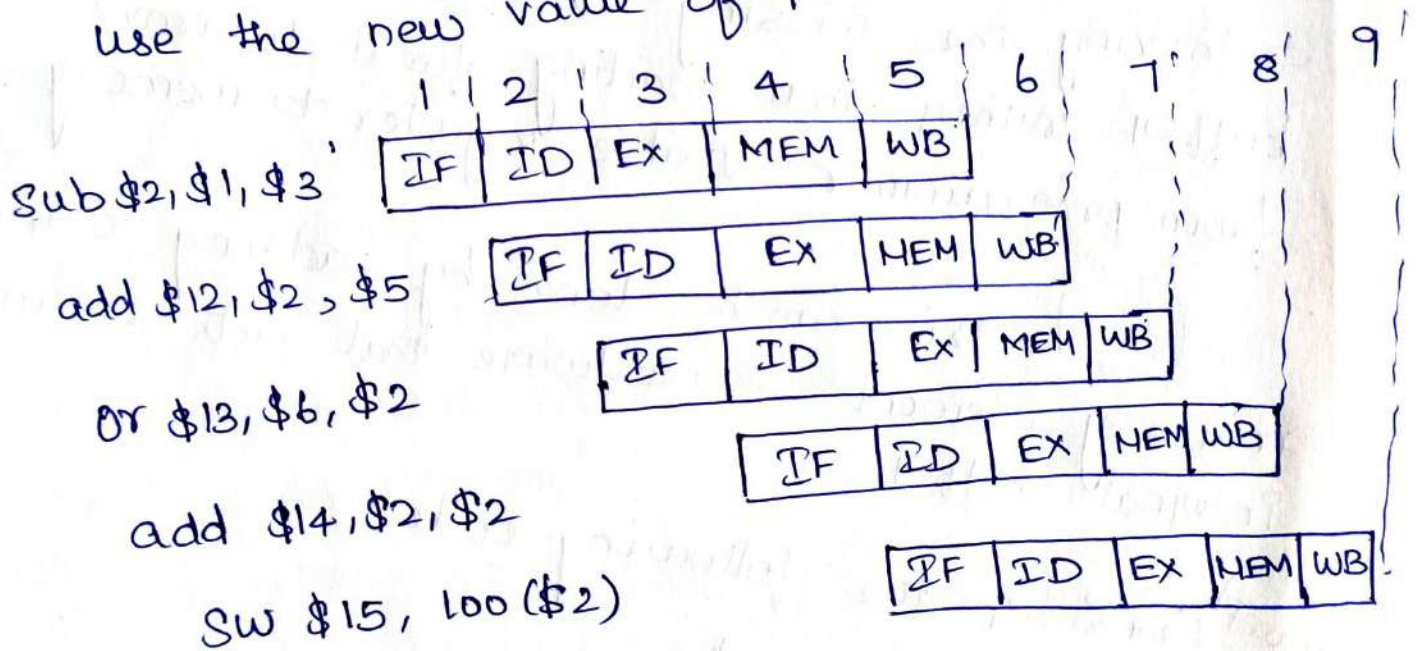 use the new value of
1 2 3 4 5 6 7 8 9
Sub $2, $1, $3 IF ID EX MEM WB
add $12, $2, $5 IF ID EX MEM WB
or $13, $6, $2 IF ID EX MEM WB
add $14, $2, $2 IF ID EX MEM WB
SW $15, 100 ($2) IF ID EX MEM WB